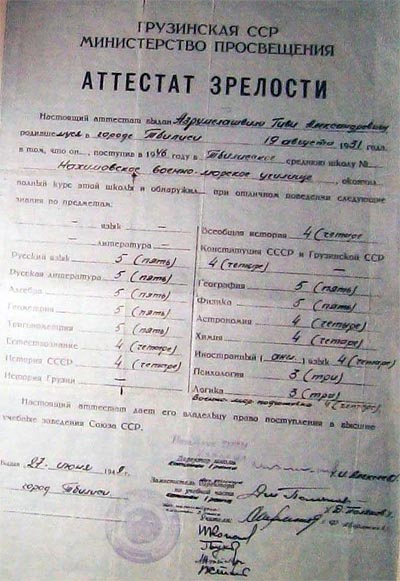 ГРУЗИНСКАЯ ССР
МИНИСТЕРСТВО ПРОСВЕЩЕНИЯ
АТТЕСТАТ ЗРЕЛОСТИ
Настоящий аттестат выдан Азрумелашвили Гиви Александровичу
родившемуся в городе Тбилиси 19 августа 1931 года,
в том, что он, поступив в 1946 году в Тбилисское среднюю школу №
Нахимовское военно-морское училище, окончил
полный курс этой школы и обнаружил при отличном поведении следующие
знания по предметам:
— язык —
— литература —
Русский язык 5 (пять)
Русская литература 5 (пять)
Алгебра 5 (пять)
Геометрия 5 (пять)
Тригонометрия 5 (пять)
Естествознание 4 (четыре)
История СССР 4 (четыре)
История Грузии —
Всеобщая история 4 (четыре)
Конституция СССР и Грузинской ССР
4 (четыре) —
География 5 (пять)
Физика 5 (пять)
Астрономия 4 (четыре)
Химия 4 (четыре)
Иностранный (англ.) язык 4 (четыре)
Психология 3 (три)
Логика 3 (три)
Военно-мор подготовка 4 (четыре)
Настоящий аттестат дает его владельцу право поступления в высшие
учебные заведения Союза ССР.
Выдан 27 июня 194 г.
город Тбилиси
Директор школы
по учебной части
Учителя: